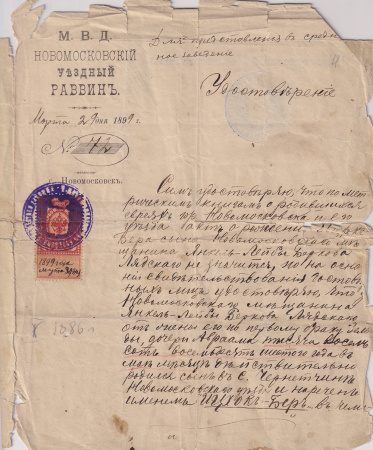 М. В. Д.
НОВОМОСКОВСКІЙ
УѢЗДНЫЙ
РАВВИНЪ.
Марта 29 дня 1899 г.
№ 42
г. Новомосковскъ.
Для представленія въ средне
учебное заведеніе
Удостовѣреніе
Симъ удостовѣряю, что по мет
рическимъ книгамъ о родившихся
евреяхъ г. Новомосковска и его
уѣзда актъ о рожденіи
Бера сына Новомосковскаго мѣ
щанина Янкель-Лейбы Беркова
Лядскаго не значится, но на осно
ніи свидѣтельствованія
лицъ удостовѣряю, что
Новомосковскаго мѣщанина
Янкель-Лейбы Беркова Лядскаго
отъ жены его по первому браку
дочери Авраама тысяча восем
сотъ восемьдесятъ шестого года въ
маѣ мѣсяцѣ дѣйствительно
родился сынъ въ с. Чернетчинѣ
Новомосковскаго уѣзда и нареченъ
именемъ ИЦХОКЪ-Беръ въ чемъ
1899 года
Марта 29 дня
1886 г.